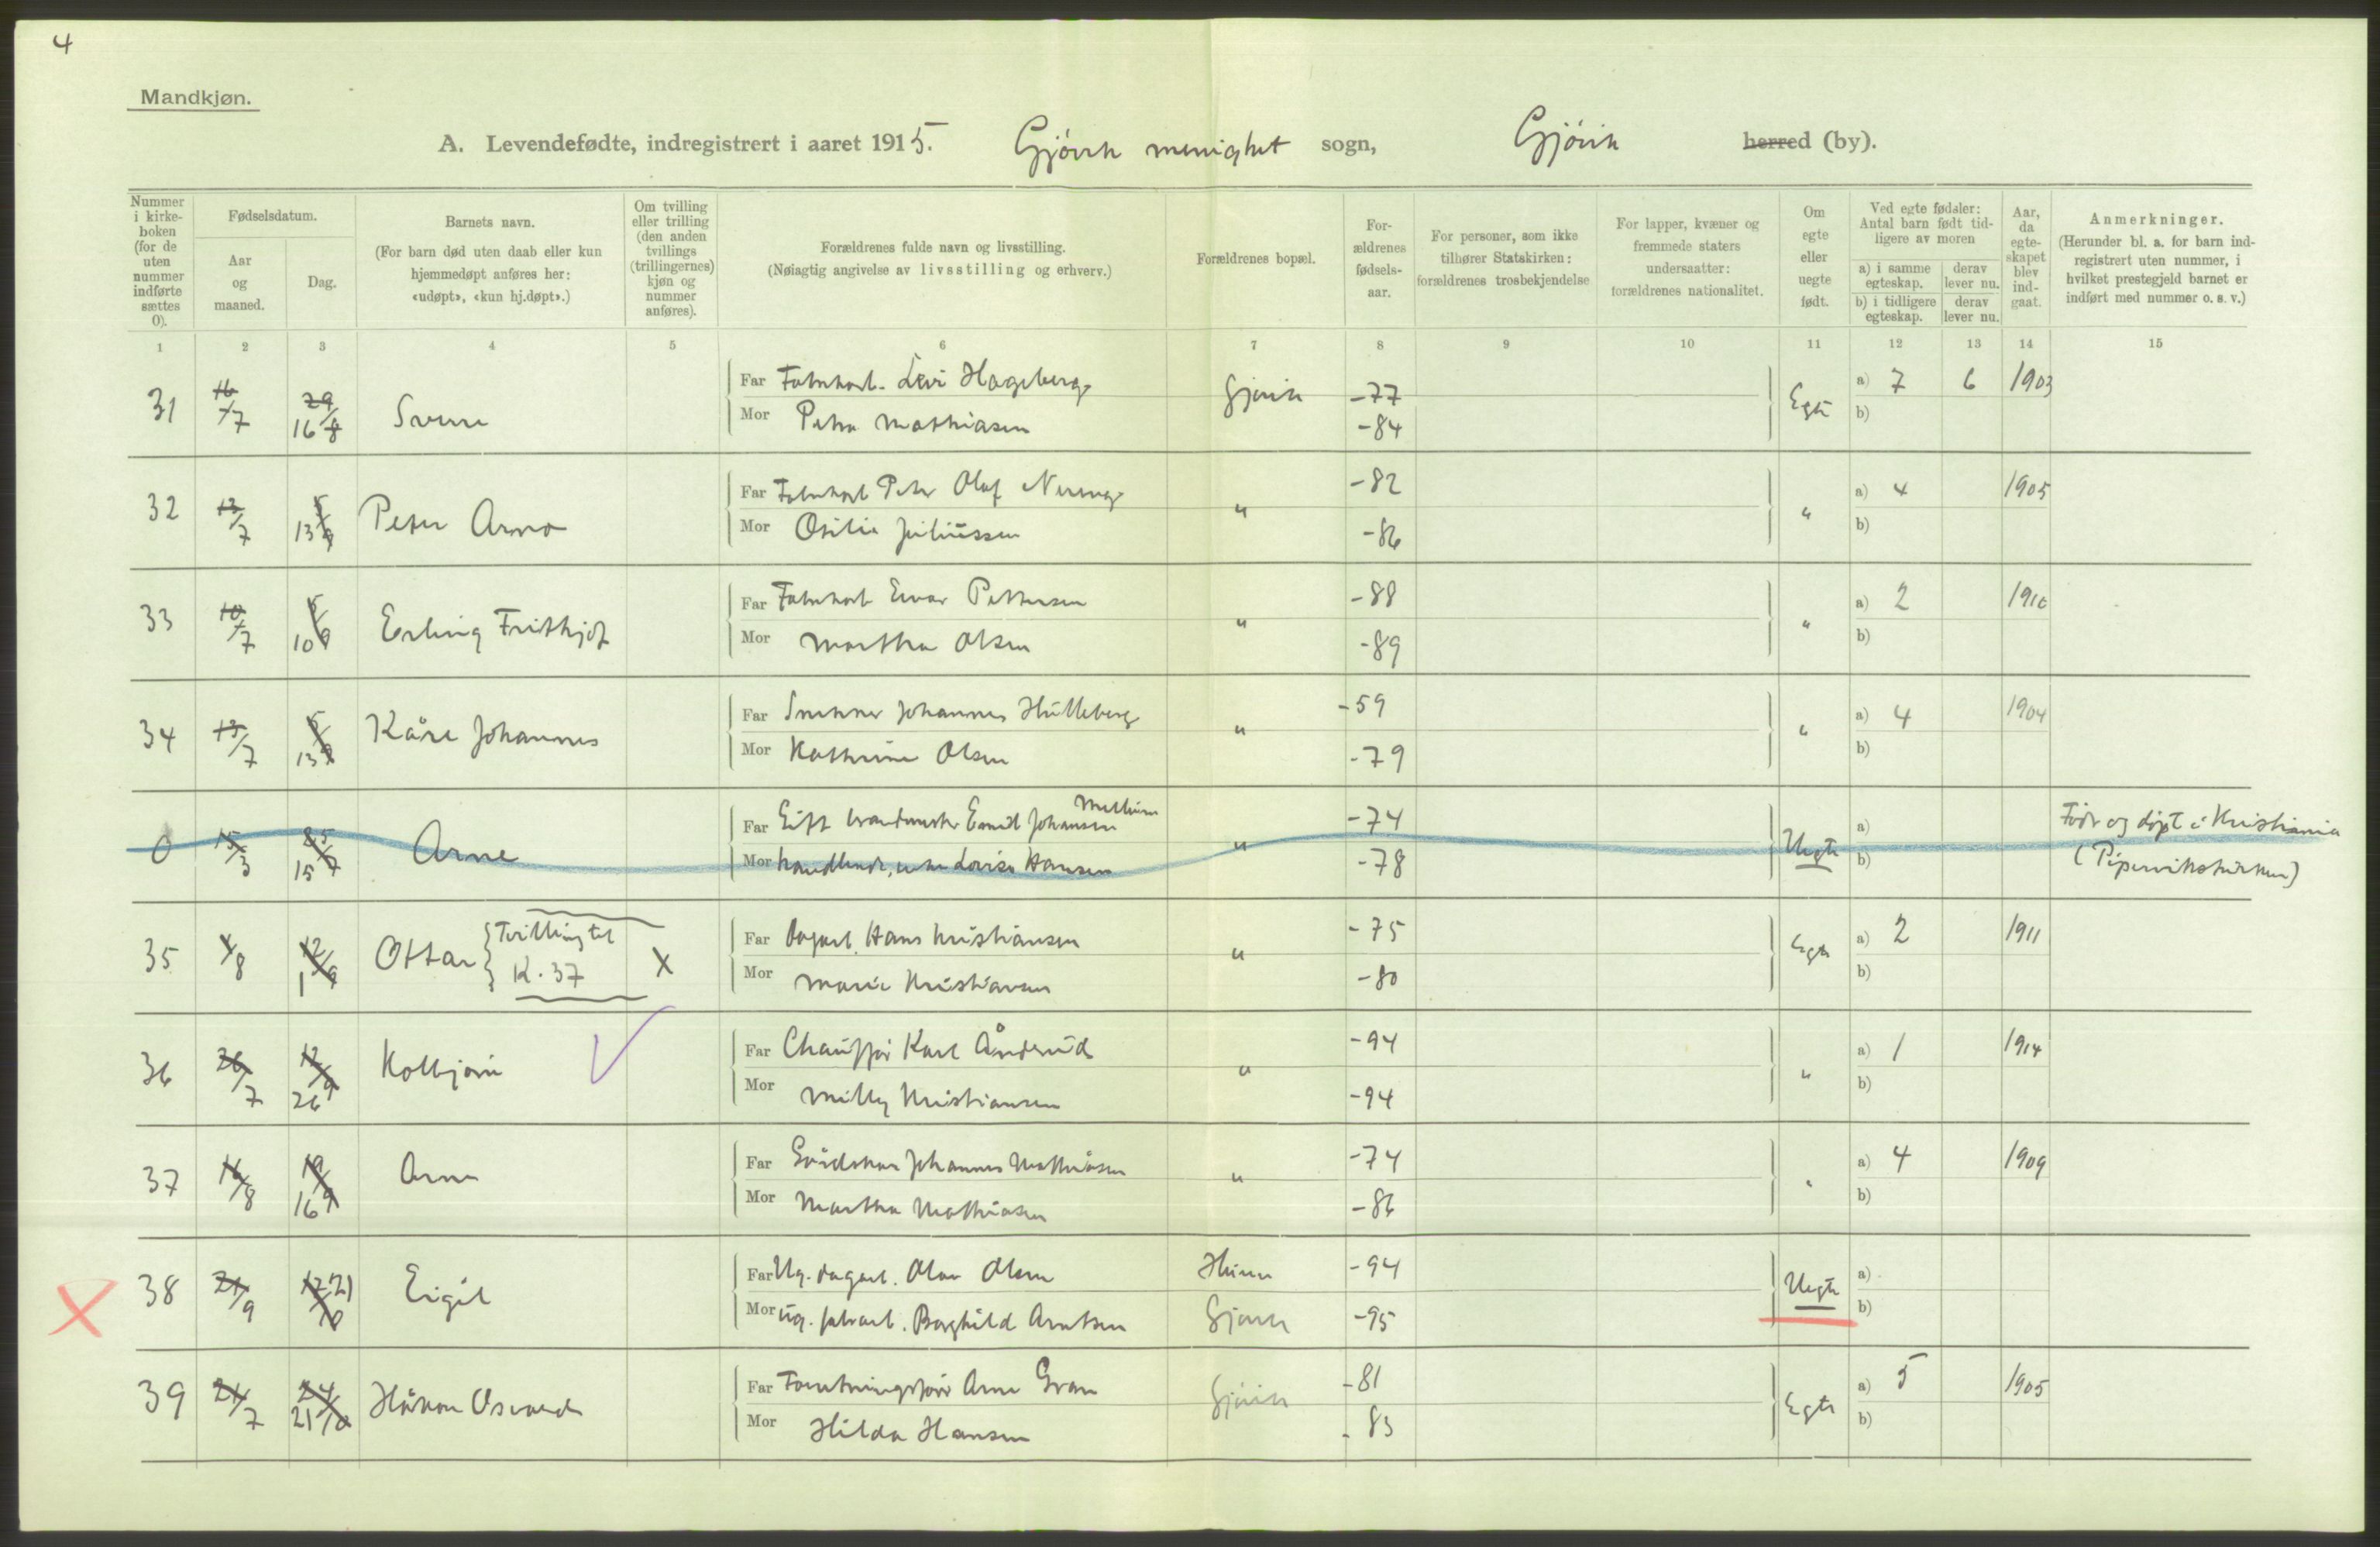 4
Mandkjøn.
A. Levendefødte, indregistrert i aaret 1915. Gjövik menighet sogn, Gjövik herred (by).
Nummer i kirkeboken (for de uten nummer indførte sættes 0).
Fødselsdatum.
Aar og maaned.
Dag.
Barnets navn.
(For barn død uten daab eller kun hjemmedøpt anføres her: «udøpt», «kun hj.døpt».)
Om tvilling eller trilling (den anden tvillings (trillingernes) kjøn og nummer anføres).
Forældrenes fulde navn og livsstilling.
(Nøiagtig angivelse av livsstilling og erhverv.)
Forældrenes bopæl.
Forældrenes fødselsaar.
For personer, som ikke tilhører Statskirken: forældrenes trosbekjendelse
For lapper, kvæner og fremmede staters undersaatter: forældrenes nationalitet.
Om egte eller uegte født.
Ved egte fødsler: Antal barn født tidligere av moren
a) i samme egteskap. derav lever nu.
b) i tidligere egteskap. derav lever nu.
Aar, da egteskapet blev indgaat.
Anmerkninger.
(Herunder bl. a. for barn indregistrert uten nummer, i hvilket prestegjeld barnet er indført med nummer o. s. v.)
1 2 3 4 5 6 7 8 9 10 11 12 13 14 15
31 16/7 29/8 16 Sverre Far Fabrikarb. Levi Hageberg Gjøvik -77 Egte a) 7 6 1903
Mor Petra Mathiasen -84 b)
32 13/7 5/9 13 Peter Arno Far Fabrikarb Peter Olaf " -82 " a) 4 1905
Mor Otilie Juliussen -86 b)
33 10/7 5/9 10 Erling Frithjof Far Fabrikarb Einar Pettersen " -88 " a) 2 1910
Mor Martha Olsen -89 b)
34 13/7 5/9 13 Kåre Johannes Far Snekker Johannes Hulleberg " -59 " a) 4 1904
Mor Kathrine Olsen -79 b)
0 15/3 25/7 15 Arne Far Gift brandmester Emil Johansen " -74 Uegte a) Født og døpt i Kristiania
Mor handlende, enke Lovise Hansen -78 b) (Piperviksskirken)
35 1/8 12/9 1 Ottar Tvilling til K. 37 x Far Dagarb. Hans Kristiansen " -75 Egte a) 2 1911
Mor Marie Kristiansen -80 b)
36 26/7 12/9 26 Kolbjørn Far Chauffør Karl Ånderud " -94 " a) 1 1914
Mor Milly Kristiansen -94 b)
37 16/8 19/9 16 Arne Far Gårdskar Johannes Mathiasen " -74 " a) 4 1909
Mor Martha Mathiasen -86 b)
38 21/9 21 Eigil Far Ug. dagarb. Olav Olsen Hunn -94 Uegte a)
Mor ug. fabrarb. Borghild Arntsen Gjøvik -95 b)
39 21/7 24 21 Håkon Osvald Far Forretningsfører Arne Gran Gjøvik -81 Egte a) 5 1905
Mor Hilda Hansen -83 b)